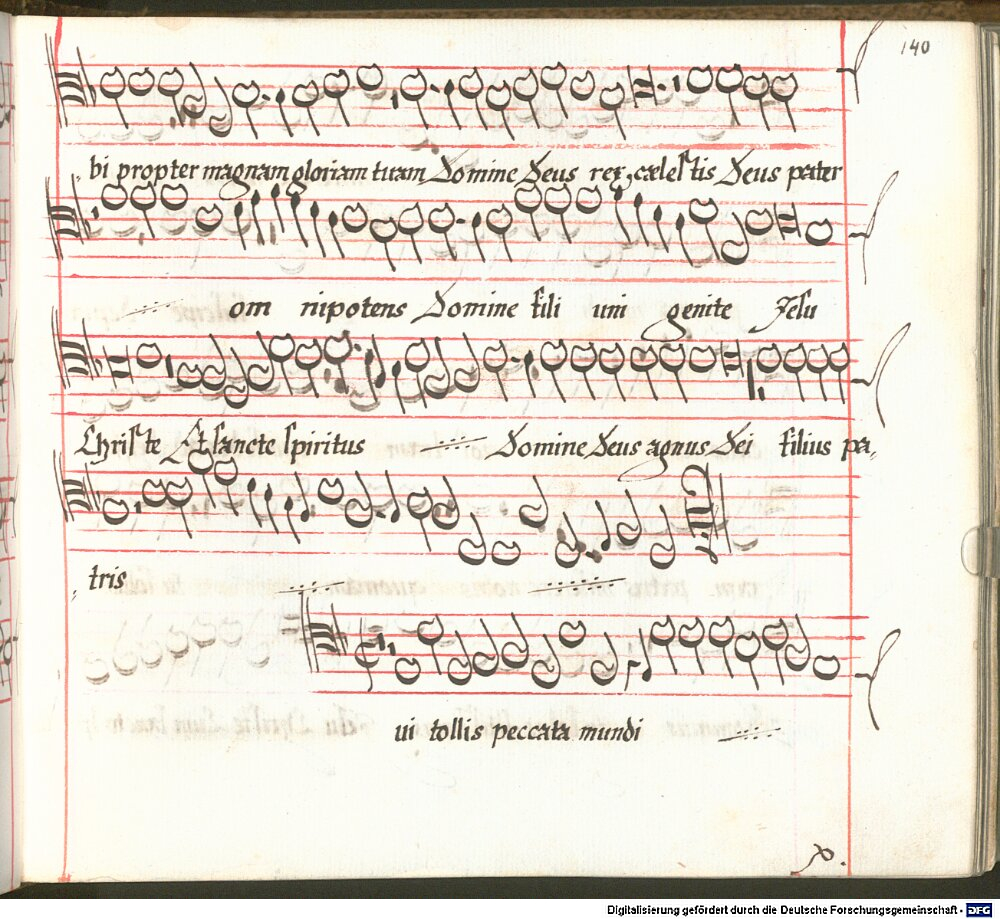 140
bi propter magnam gloriam tuam Domine Deus rex cælestis Deus pater
om nipotens Domine fili uni genite Jesu
Christe Et sancte spiritus Domine Deus agnus Dei filius pa
tris
ui tollis peccata mundi
Digitalisierung gefördert durch die Deutsche Forschungsgemeinschaft - DFG